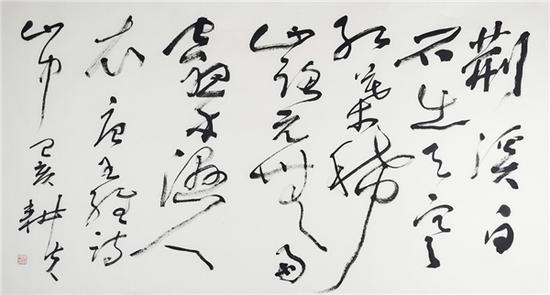 荆溪白
石出天寒
红葉稀
山路元無雨
空翠濕人
衣 唐王維詩
山中 己亥 耕夫